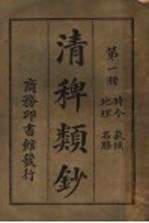 第一冊
時令 氣候
地理 名勝
清稗類鈔
商務印書館發行